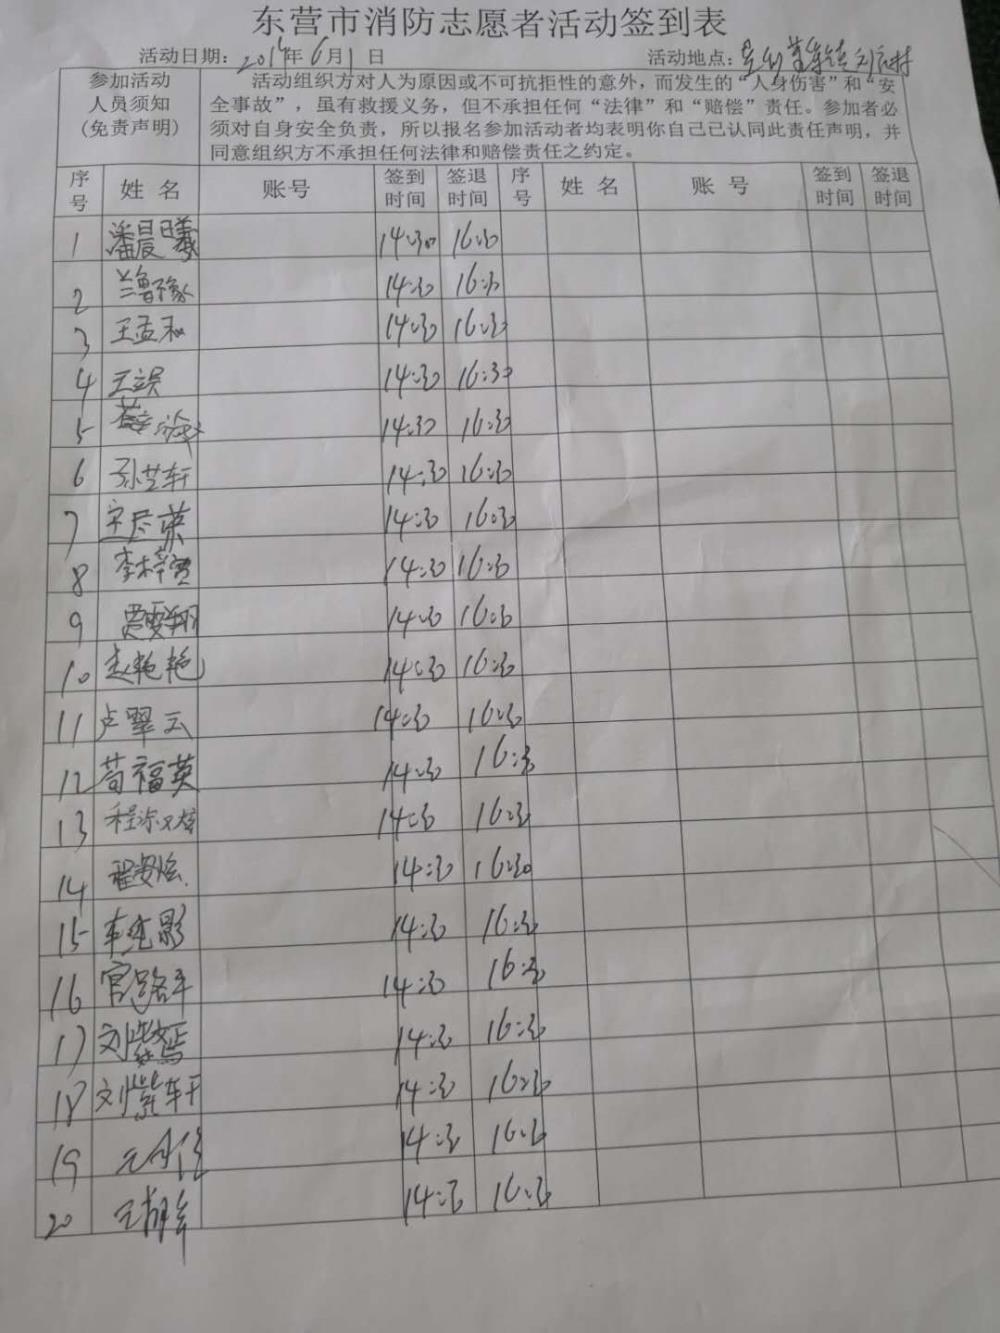 东营市消防志愿者活动签到表
活动日期: 年6月1日 活动地点:
参加活动人员须知(免责声明)
活动组织方对人为原因或不可抗拒性的意外，而发生的“人身伤害”和“安
全事故”，虽有救援义务，但不承担任何“法律”和“赔偿”责任。参加者必
须对自身安全负责，所以报名参加活动者均表明你自己已认同此责任声明，并
同意组织方不承担任何法律和赔偿责任之约定。
序号 姓名 账号 签到时间 签退时间 序号 姓名 账号 签到时间 签退时间
1 潘晨曦 14:30 16:30
2 14:30 16:30
3 王孟和 14:30 16:30
4 14:30 16:30
5 14:30 16:30
6 孙芷轩 14:30 16:30
7 14:30 16:30
8 14:30 16:30
9 贾雯翔 14:30 16:30
10 赵艳艳 14:30 16:30
11 卢翠云 14:30 16:30
12 苟福英 14:30 16:30
13 14:30 16:30
14 14:30 16:30
15 14:30 16:30
16 官路平 14:30 16:30
17 刘紫嫣 14:30 16:30
18 刘紫轩 14:30 16:30
19 14:30 16:30
20 14:30 16:30